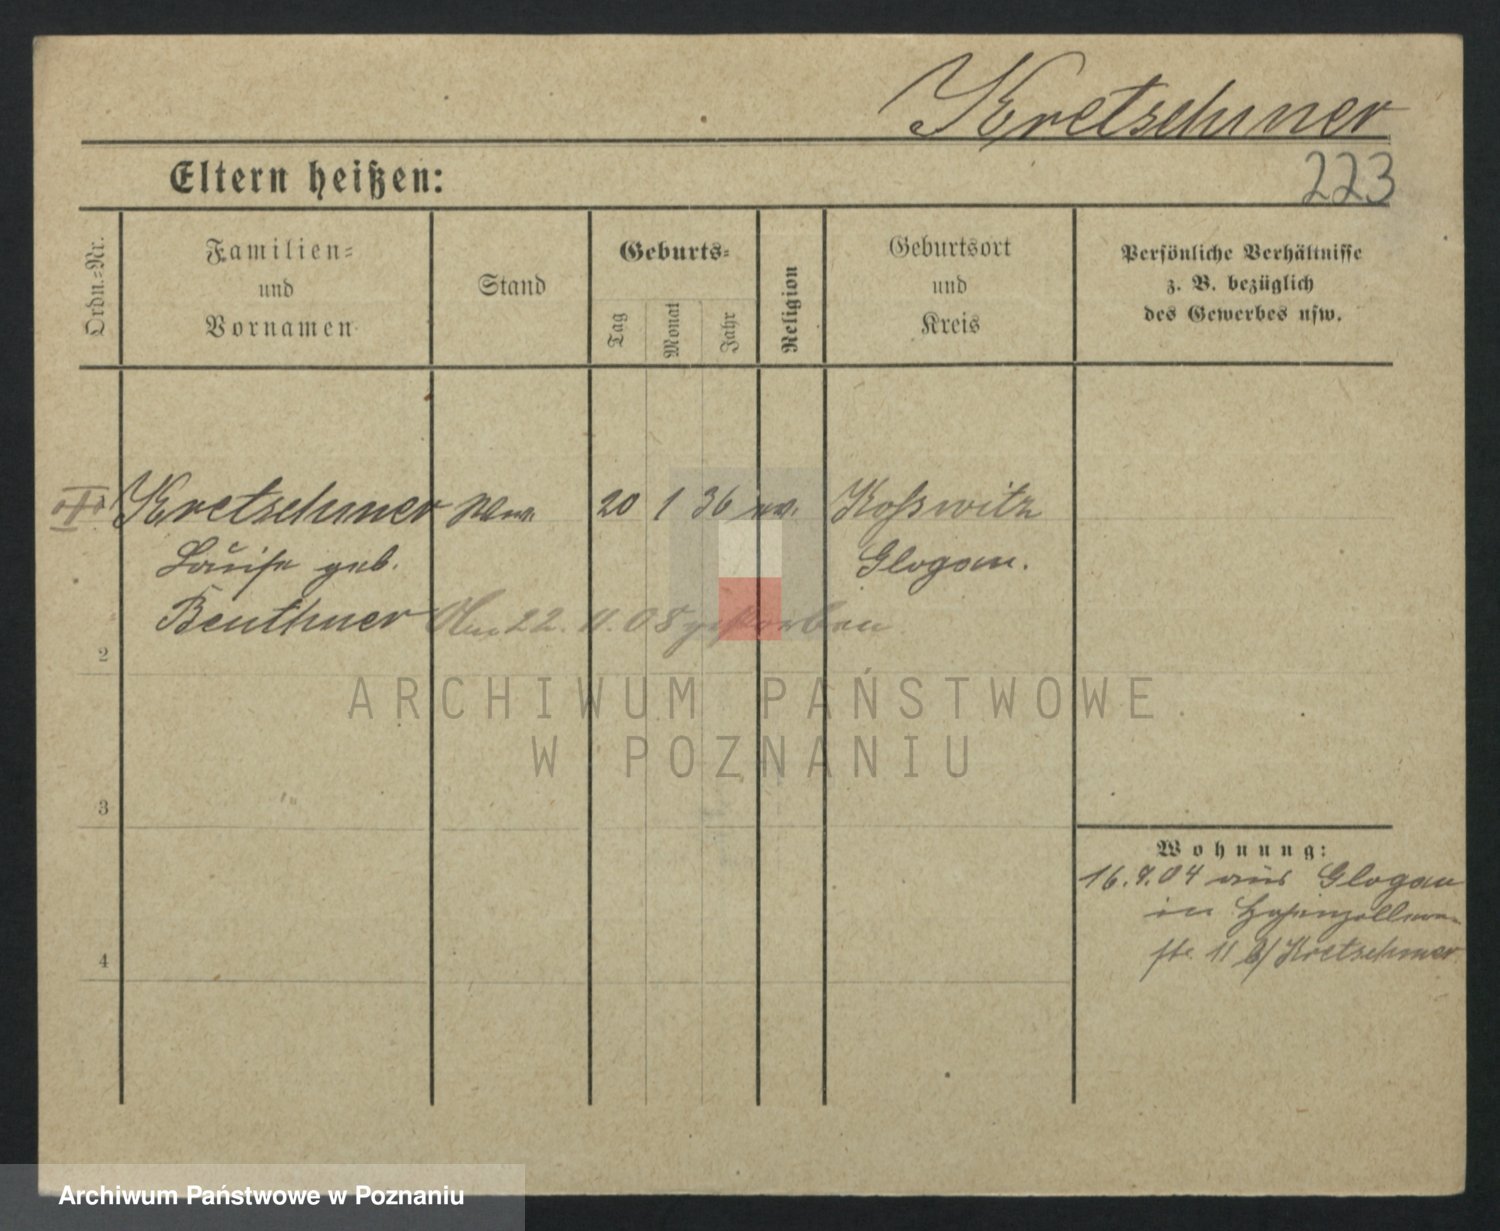 Kretschmer
223
Eltern heißen:
Ordn.-Nr.
Familien-
und
Vornamen
Stand
Geburts-
Tag
Monat
Jahr
Religion
Geburtsort
und
Kreis
Persönliche Verhältnisse
z. B. bezüglich
des Gewerbes usw.
Kretschmer Ww. 20 1 36 ev. Kosswitz
Louise geb. Glogau.
Beuthner Am 22. 11. 05 gestorben
2
ARCHIWUM PAŃSTWOWE
W POZNANIU
3
Wohnung:
16.9.04 aus Glogau
in Hohenzollern-
str. 11 b/ Kretschmer
4
Archiwum Państwowe w Poznaniu